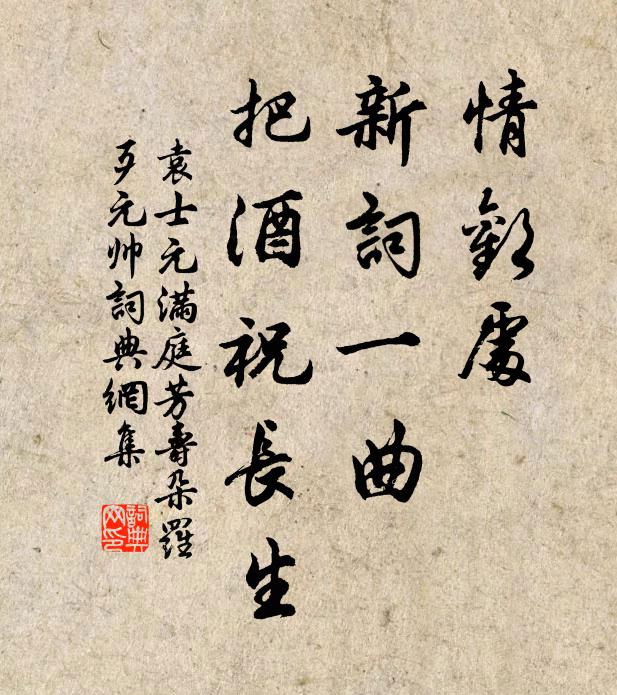 情歡處
新詞一曲
把酒祝長生
袁士元滿庭芳壽朵羅
歹元帅詞典網集
詞典網印